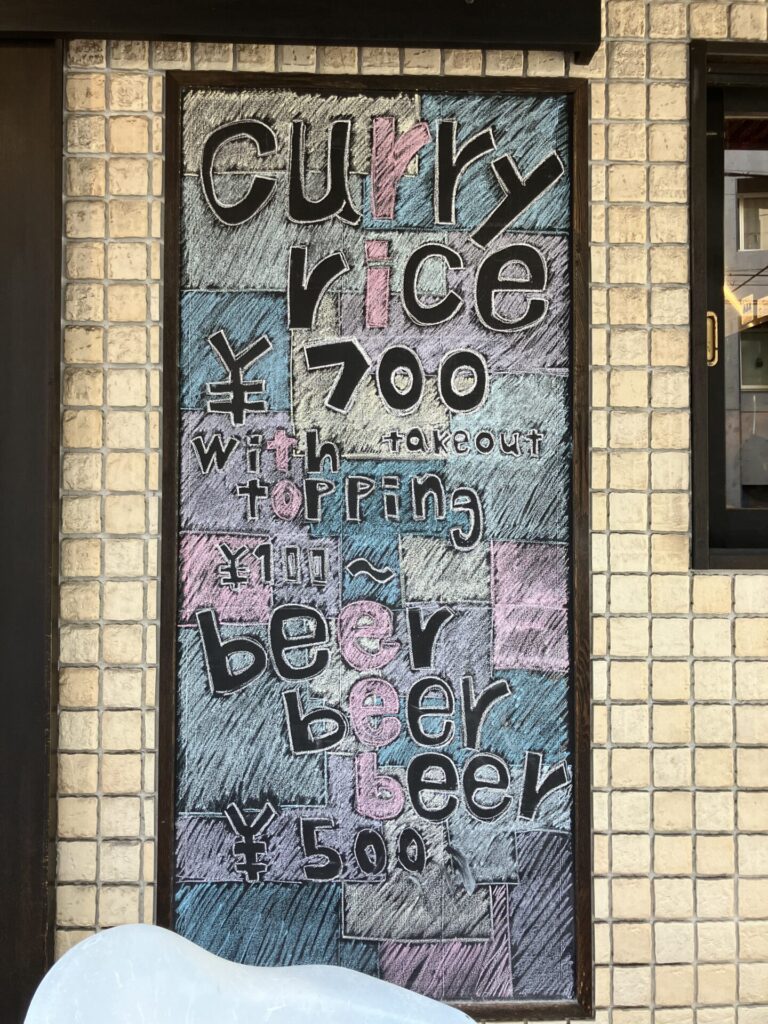 curry
rice
¥ 700
with takeout
topping
¥100~
beer
beer
beer
¥500~